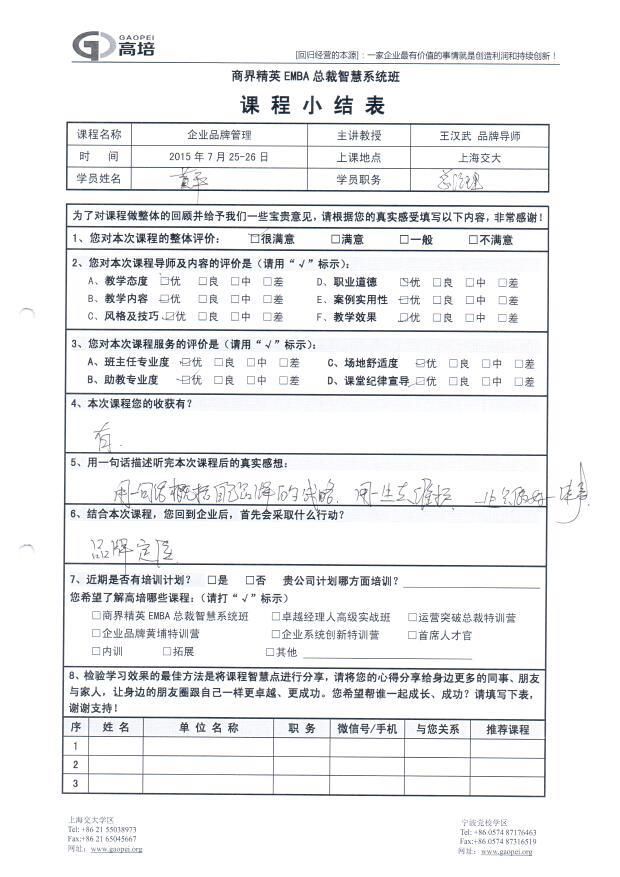 GAOPEI
高培
[回归经营的本源]：一家企业最有价值的事情就是创造利润和持续创新！
商界精英 EMBA 总裁智慧系统班
课 程 小 结 表
课程名称 企业品牌管理 主讲教授 王汉武 品牌导师
时 间 2015 年 7 月 25-26 日 上课地点 上海交大
学员姓名 学员职务 总经理
为了对课程做整体的回顾并给予我们一些宝贵意见，请根据您的真实感受填写以下内容，非常感谢！
1、您对本次课程的整体评价： □很满意 □满意 □一般 □不满意
2、您对本次课程导师及内容的评价是（请用“√”标示）：
A、教学态度 □优 □良 □中 □差 D、职业道德 ☑优 □良 □中 □差
B、教学内容 ☑优 □良 □中 □差 E、案例实用性 ☑优 □良 □中 □差
C、风格及技巧 ☑优 □良 □中 □差 F、教学效果 ☑优 □良 □中 □差
3、您对本次课程服务的评价是（请用“√”标示）：
A、班主任专业度 ☑优 □良 □中 □差 C、场地舒适度 ☑优 □良 □中 □差
B、助教专业度 ☑优 □良 □中 □差 D、课堂纪律宣导 ☑优 □良 □中 □差
4、本次课程您的收获有？
有.
5、用一句话描述听完本次课程后的真实感想：
用一句话概括自己品牌的战略，用一生去维护，一生只做好一件事
6、结合本次课程，您回到企业后，首先会采取什么行动？
品牌定位
7、近期是否有培训计划？ □是 □否 贵公司计划哪方面培训？
您希望了解高培哪些课程：（请打“√”标示）
□商界精英 EMBA 总裁智慧系统班 □卓越经理人高级实战班 □运营突破总裁特训营
□企业品牌黄埔特训营 □企业系统创新特训营 □首席人才官
□内训 □拓展 □其他
8、检验学习效果的最佳方法是将课程智慧点进行分享，请将您的心得分享给身边更多的同事、朋友
与家人，让身边的朋友圈跟自己一样更卓越、更成功。您希望帮谁一起成长、成功？请填写下表，
谢谢支持！
序 姓 名 单 位 名 称 职 务 微信号/手机 与您关系 推荐课程
1
2
3
上海交大学区
Tel: +86 21 55038973
Fax:+86 21 65045667
网址：www.gaopei.org
宁波党校学区
Tel:+86.0574 87176463
Fax:+86.0574 87316519
网址：www.gaopei.org